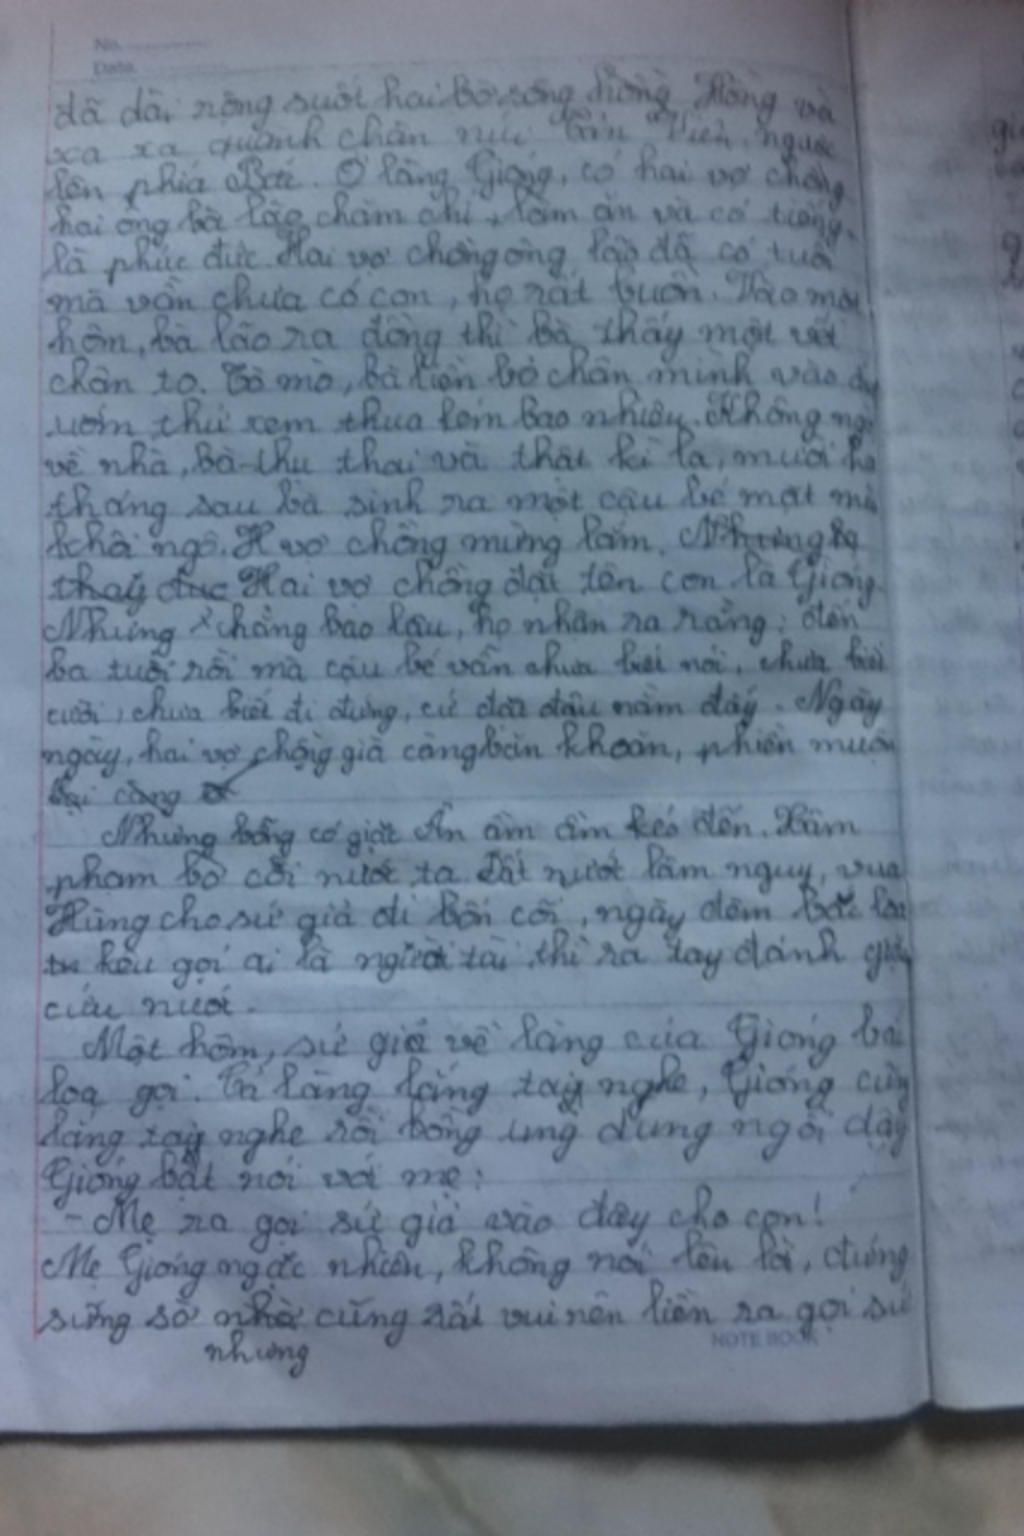 No.
Date.
dã dài, rộng suốt hai bờ sông Hồng và
xa xa quanh chân núi Tản Viên, ngược
lên phía Bắc. Ở làng Gióng, có hai vợ chồng
hai ông bà lão chăm chỉ, làm ăn và có tiếng
là phúc đức. Hai vợ chồng ông lão đã có tuổi
mà vẫn chưa có con, họ rất buồn. Vào một
hôm, bà lão ra đồng thì bà thấy một vết
chân to. Tò mò, bà liền bỏ chân mình vào
ướm thử xem thua kém bao nhiêu. Không ngờ
về nhà, bà thụ thai và thật kì lạ, mười ha
tháng sau bà sinh ra một cậu bé mặt mũ
khôi ngô. H vợ chồng mừng lắm. Nhưng họ
thay đuc Hai vợ chồng đặt tên con là Gióng.
Nhưng chẳng bao lâu, họ nhận ra rằng: đến
ba tuổi rồi mà cậu bé vẫn chưa biết nói, chưa biết
cười, chưa biết đi đứng, cứ đặt đâu nằm đấy. Ngày
ngày, hai vợ chồng già càng băn khoăn, phiền muộn
lại càng
Nhưng bỗng có giặc Ân ầm ầm kéo đến. Xâm
phạm bờ cõi nước ta. Đất nước lâm nguy, vua
Hùng cho sứ giả đi bốn cõi, ngày đêm bắc loa
kêu gọi ai là người tài thì ra tay đánh giặc
cứu nước.
Một hôm, sứ giả về làng của Gióng bắ
loa gọi. Cả làng lắng tay nghe, Gióng cũng
lắng tay nghe rồi bỗng ưng dưng ngồi dậy
Gióng bật nói với mẹ:
- Mẹ ra gọi sứ giả vào đây cho con!
Mẹ Gióng ngạc nhiên, không nói lên lời, đứng
sững sờ nhà cũng rất vui nên liền ra gọi sứ
nhưng
NOTE BOOK